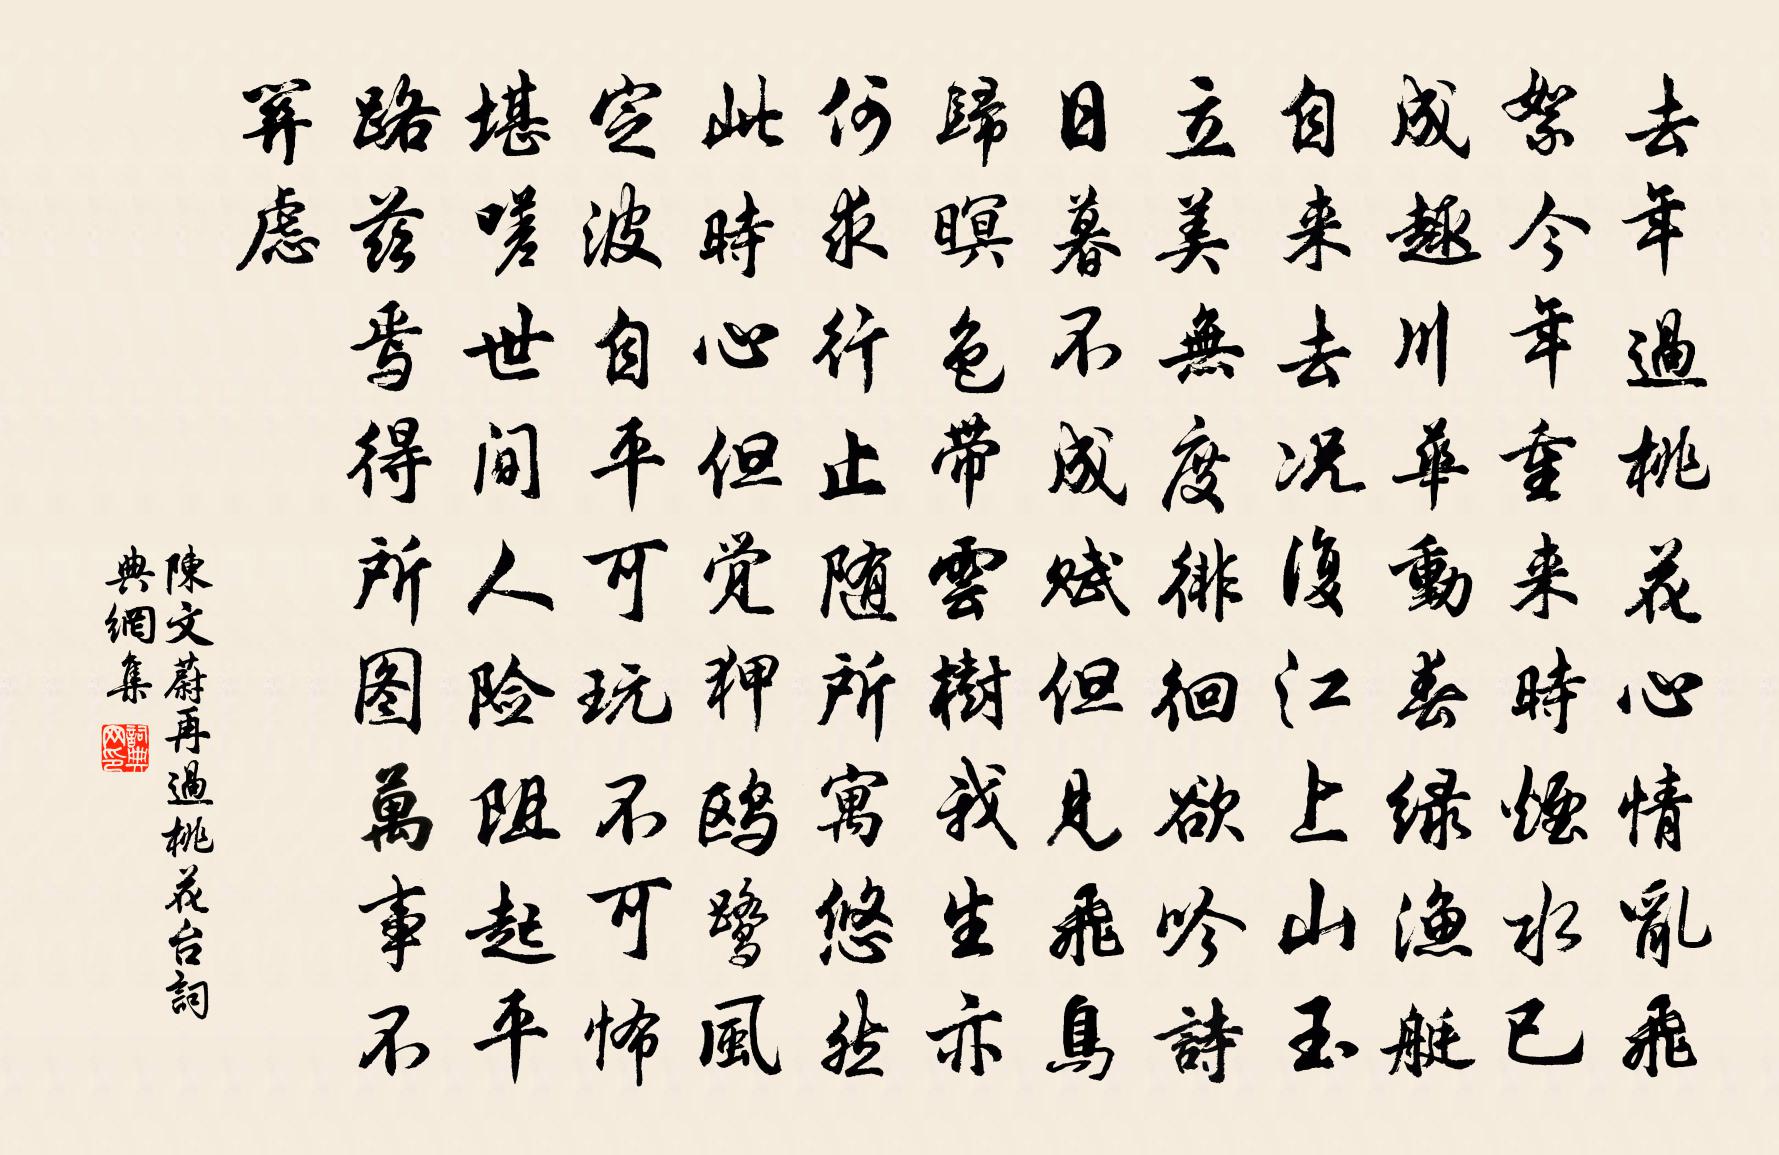 去年過桃花心情亂飛
絮今年重来時煙水已
成趣川華動春緑漁艇
自来去况復江上山玉
立美無度徘徊欲吟詩
日暮不成赋但見飛鳥
歸暝色带雲樹我生亦
何求行止随所寓悠然
此時心但觉狎鸥鹭風
定波自平可玩不可怖
堪嗟世间人险阻起平
路兹焉得所图萬事不
關慮
陳文蔚再過桃花台詞
典網集
詞典网印